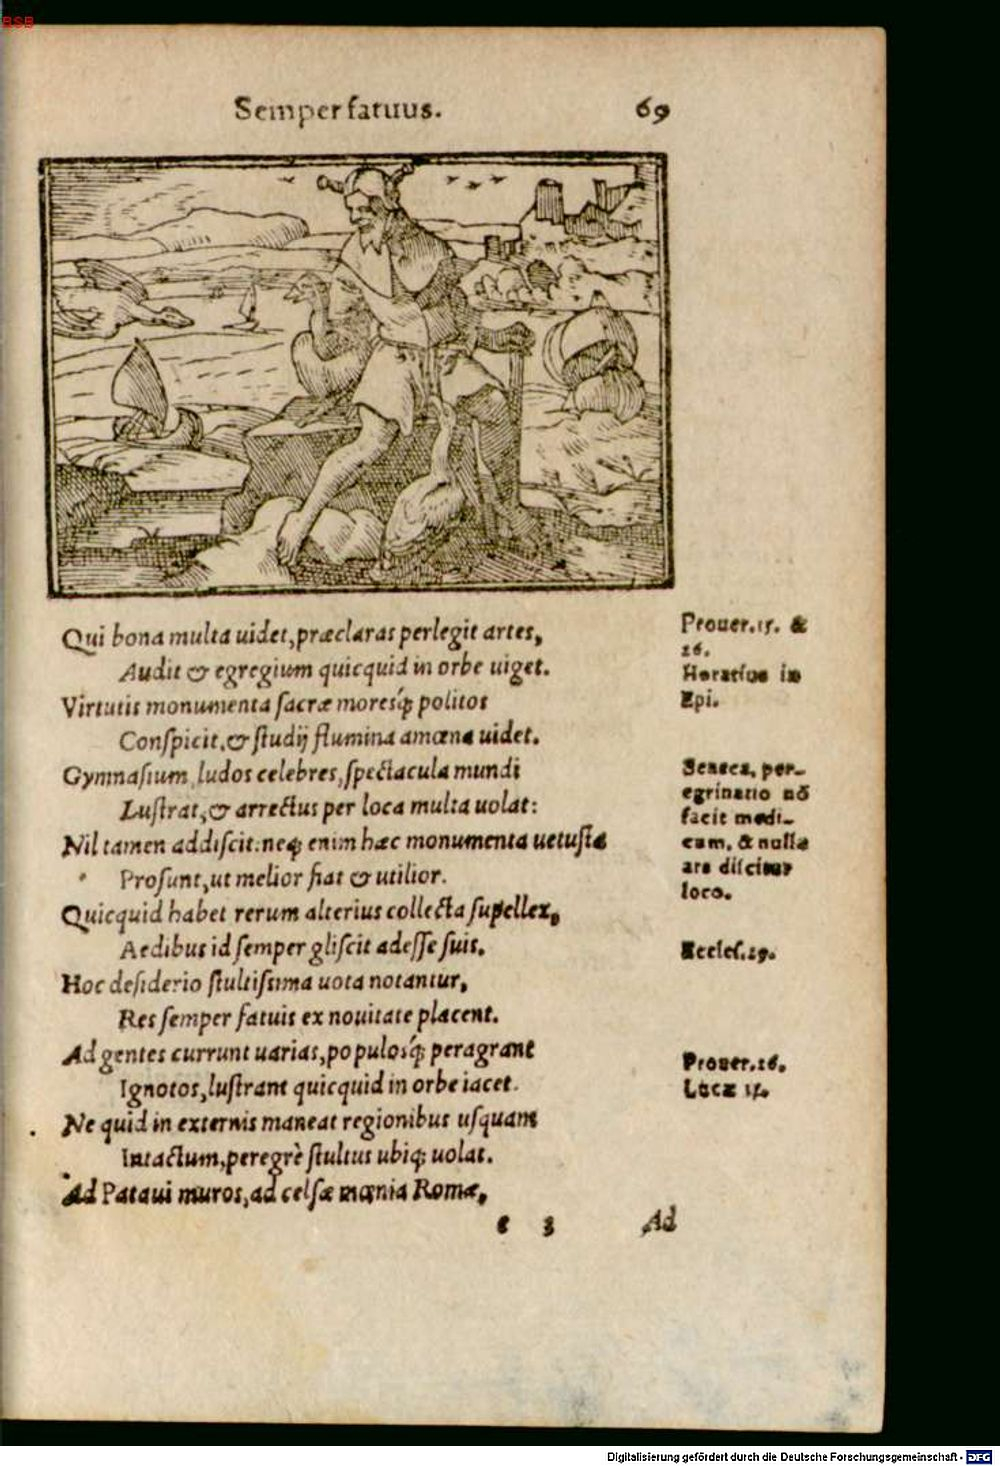 BSB
Semper fatuus. 69
Qui bona multa uidet, præclaras perlegit artes,
Audit & egregium quicquid in orbe uiget.
Virtutis monumenta sacræ moresq́; politos
Conſpicit, & ſtudij flumina amœna uidet.
Gymnaſium, ludos celebres, ſpectacula mundi
Luſtrat, & arrectus per loca multa uolat:
Nil tamen addiſcit: neq; enim hæc monumenta uetuſta
Proſunt, ut melior fiat & utilior.
Quicquid habet rerum alterius collecta ſupellex,
Aedibus id ſemper gliſcit adeſſe ſuis.
Hoc deſiderio ſtultiſsima uota notantur,
Res ſemper fatuis ex nouitate placent.
Ad gentes currunt uarias, populosq́; peragrant
Ignotos, luſtrant quicquid in orbe iacet.
Ne quid in externis maneat regionibus uſquam
Intactum, peregrè ſtultus ubiq; uolat.
Ad Pataui muros, ad celſæ mœnia Romæ,
e 3 Ad
Prouer. 15. &
26.
Horatius in
Epi.
Seneca, per-
egrinatio nõ
facit medi-
cum, & nulla
ars diſcitur
loco.
Eccleſ. 29.
Prouer. 26.
Lucæ 15.
Digitalisierung gefördert durch die Deutsche Forschungsgemeinschaft - DFG